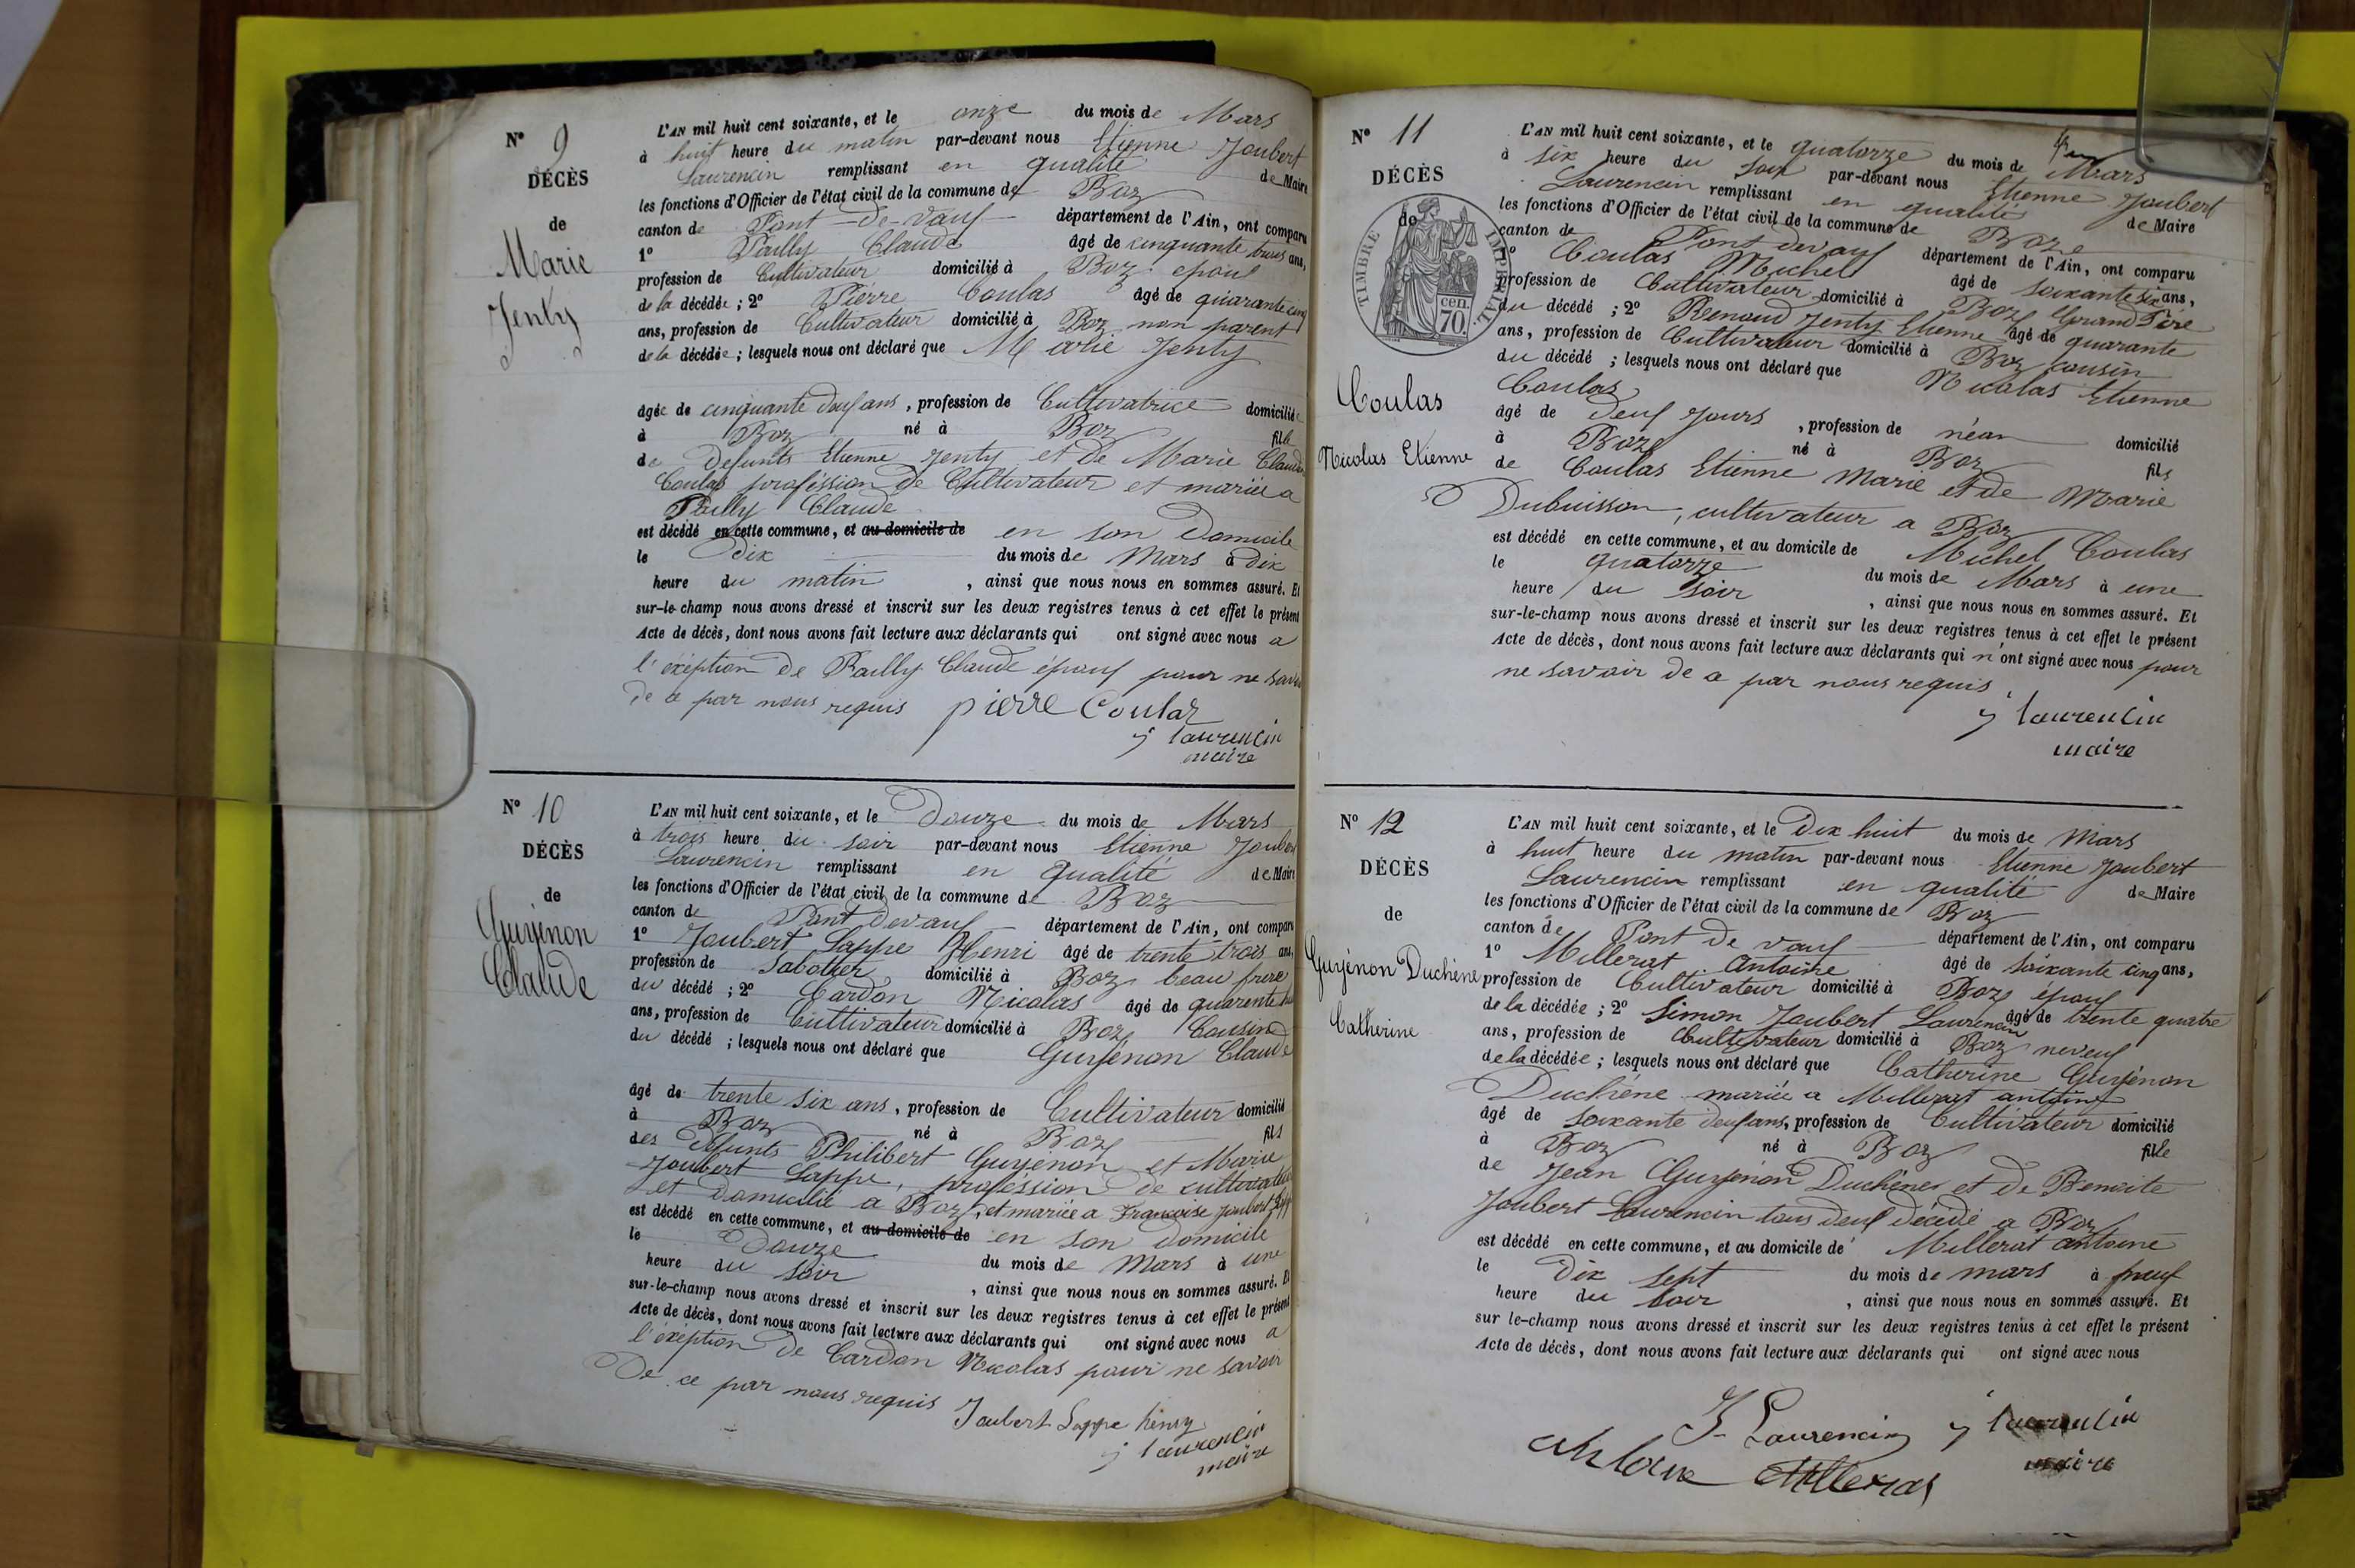 N° 9
DÉCÈS
de
Marie
Jenty
L'AN mil huit cent soixante, et le onze du mois de Mars
à huit heure du matin par-devant nous Etienne Joubert
Laurencin remplissant en qualité de Maire
les fonctions d'Officier de l'état civil de la commune de Boz
canton de Pont-de-vaux département de l'Ain, ont comparu
1° Pailly Claude âgé de cinquante trois ans,
profession de Cultivateur domicilié à Boz epoux
de la décédée ; 2° Pierre Coulas âgé de quarante cinq
ans, profession de Cultivateur domicilié à Boz non parent
de la décédée ; lesquels nous ont déclaré que Marie Jenty
âgée de cinquante deux ans, profession de Cultivatrice domicilié
à Boz né à Boz fille
de Defunts Etienne Jenty et de Marie Claudine
Coulas profession de Cultivateur et mariée a
Pailly Claude
est décédé en cette commune, et au domicile de en son Domicile
le Dix du mois de Mars à Dix
heure du matin , ainsi que nous nous en sommes assuré. Et
sur-le-champ nous avons dressé et inscrit sur les deux registres tenus à cet effet le présent
Acte de décès, dont nous avons fait lecture aux déclarants qui ont signé avec nous a
l'éxéption de Pailly Claude époux pour ne savoir
de ce par nous requis pierre Coulaz
j laurencin
maire
N° 10
DÉCÈS
de
Guyénon
Claude
L'AN mil huit cent soixante, et le Douze du mois de Mars
à trois heure du soir par-devant nous Etienne Joubert
Laurencin remplissant en qualité de Maire
les fonctions d'Officier de l'état civil de la commune de Boz
canton de Pont Devaux département de l'Ain, ont comparu
1° Joubert Lappe Henri âgé de trente trois ans,
profession de Sabotier domicilié à Boz beau frere
du décédé ; 2° Cardon Nicolas âgé de quarente
ans, profession de Cultivateur domicilié à Boz Cousin
du décédé ; lesquels nous ont déclaré que Guyénon Claude
âgé de trente six ans, profession de Cultivateur domicilié
à Boz né à Boz fils
des Défunts Philibert Guyénon et Marie
Joubert Lappe, profession de cultivateur
et Domicilié a Boz, et mariée a Francoise Joubert
est décédé en cette commune, et au domicile de en son Domicile
le Douze du mois de Mars à une
heure du soir , ainsi que nous nous en sommes assuré. Et
sur-le-champ nous avons dressé et inscrit sur les deux registres tenus à cet effet le présent
Acte de décès, dont nous avons fait lecture aux déclarants qui ont signé avec nous a
l'éxéption de Cardon Nicolas pour ne savoir
De ce par nous requis Joubert Lappe henry
j laurencin
maire
N° 11
DÉCÈS
de
TIMBRE IMPERIAL
70 cen.
Coulas
Nicolas Etienne
L'AN mil huit cent soixante, et le quatorze du mois de Mars
à six heure du soir par-devant nous Etienne Joubert
Laurencin remplissant en qualité de Maire
les fonctions d'Officier de l'état civil de la commune de Boz
canton de Pont devaux département de l'Ain, ont comparu
1° Coulas Michel âgé de soixante six ans,
profession de Cultivateur domicilié à Boz Grand Père
du décédé ; 2° Renaud Jenty Etienne âgé de quarante
ans, profession de Cultivateur domicilié à Boz cousin
du décédé ; lesquels nous ont déclaré que Nicolas Etienne
Coulas
âgé de Deux Jours , profession de néan domicilié
à Boz né à Boz fils
de Coulas Etienne Marie et de Marie
Dubuisson, cultivateur a Boz
est décédé en cette commune, et au domicile de Michel Coulas
le quatorze du mois de Mars à une
heure du soir , ainsi que nous nous en sommes assuré. Et
sur-le-champ nous avons dressé et inscrit sur les deux registres tenus à cet effet le présent
Acte de décès, dont nous avons fait lecture aux déclarants qui n'ont signé avec nous pour
ne savoir de ce par nous requis.
j laurencin
maire
N° 12
DÉCÈS
de
Guyénon Duchène
Catherine
L'AN mil huit cent soixante, et le Dix huit du mois de Mars
à huit heure du matin par-devant nous Etienne Joubert
Laurencin remplissant en qualité de Maire
les fonctions d'Officier de l'état civil de la commune de Boz
canton de Pont De vaux département de l'Ain, ont comparu
1° Millerat Antoine âgé de soixante cinq ans,
profession de Cultivateur domicilié à Boz époux
de la décédée ; 2° Simon Joubert Laurencin âgé de trente quatre
ans, profession de Cultivateur domicilié à Boz neveux
de la décédée ; lesquels nous ont déclaré que Catherine Guyénon
Duchéne mariée a Millerat antoine
âgé de soixante deux ans, profession de Cultivateur domicilié
à Boz né à Boz fille
de Jean Guyénon Duchéne et de Benoite
Joubert Laurencin tous deux décédé a Boz
est décédé en cette commune, et au domicile de Millerat antoine
le Dix sept du mois de mars à neuf
heure du soir , ainsi que nous nous en sommes assuré. Et
sur le-champ nous avons dressé et inscrit sur les deux registres tenus à cet effet le présent
Acte de décès, dont nous avons fait lecture aux déclarants qui ont signé avec nous
J. Laurencin j laurencin
Millerat maire